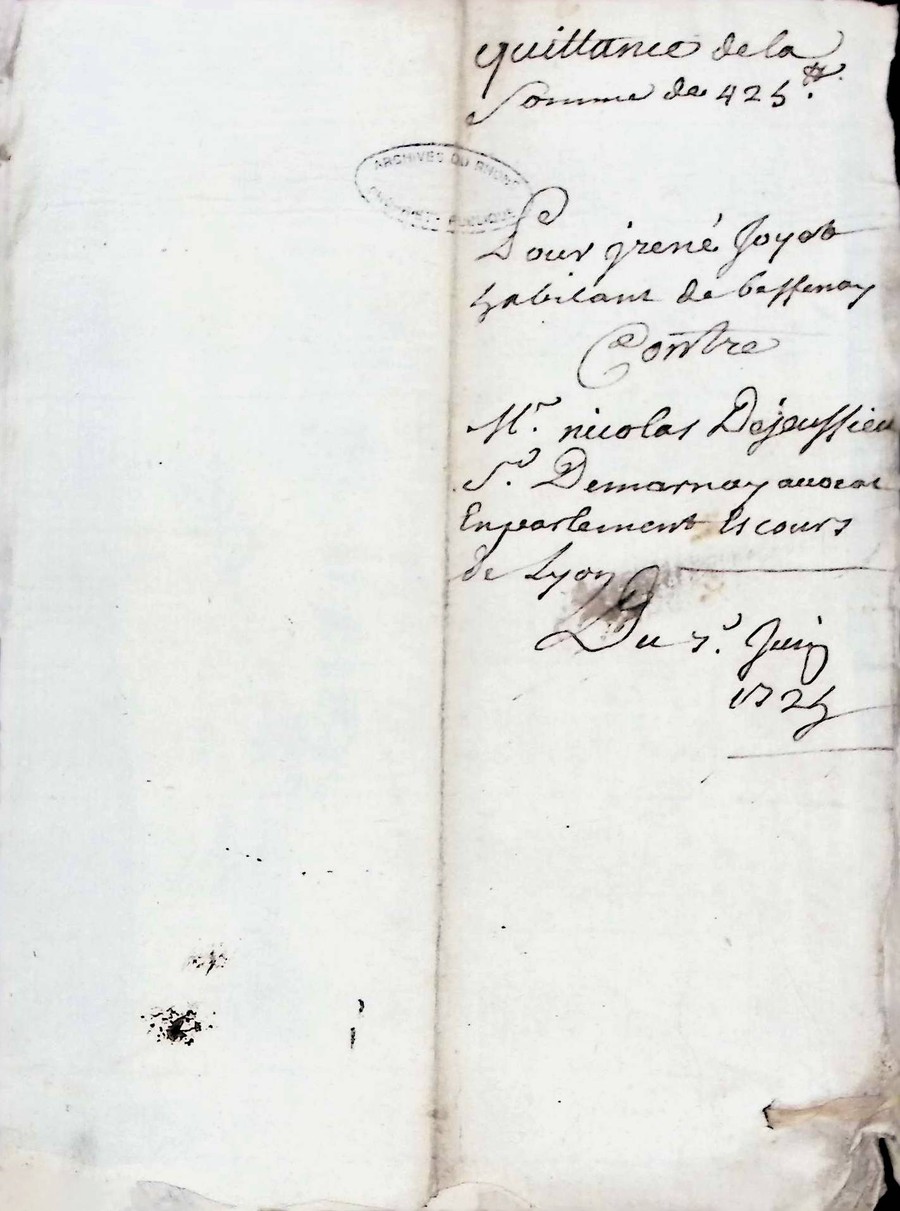 quittance de la
Somme de 425 ₶.
ARCHIVES DU RHONE
PROPRIÉTÉ PUBLIQUE
Pour jrené Joyet
habitant de bessenay
Contre
Mr. nicolas Dejeussieu
Sr. Demarnay auocat
En parlement Es cours
de Lyon
Du 7e. Juin
1725